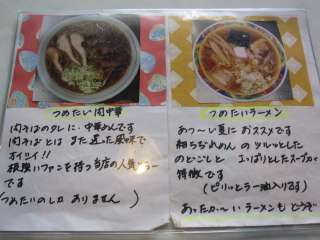 つめたい肉中華
肉そばのタレに、中華めんです
肉そばとは また違った風味で
オイシイ!!
根強いファンを持つ当店の人気メニュー
です
(つめたいのしか ありません)
つめたいラーメン
あつ〜い夏に おススメです
細ちぢれめん のツルッとした
のどごしと さっぱりとしたスープが
特徴です
(ピリッとラー油入りです)
あったか〜いラーメンも どうぞ